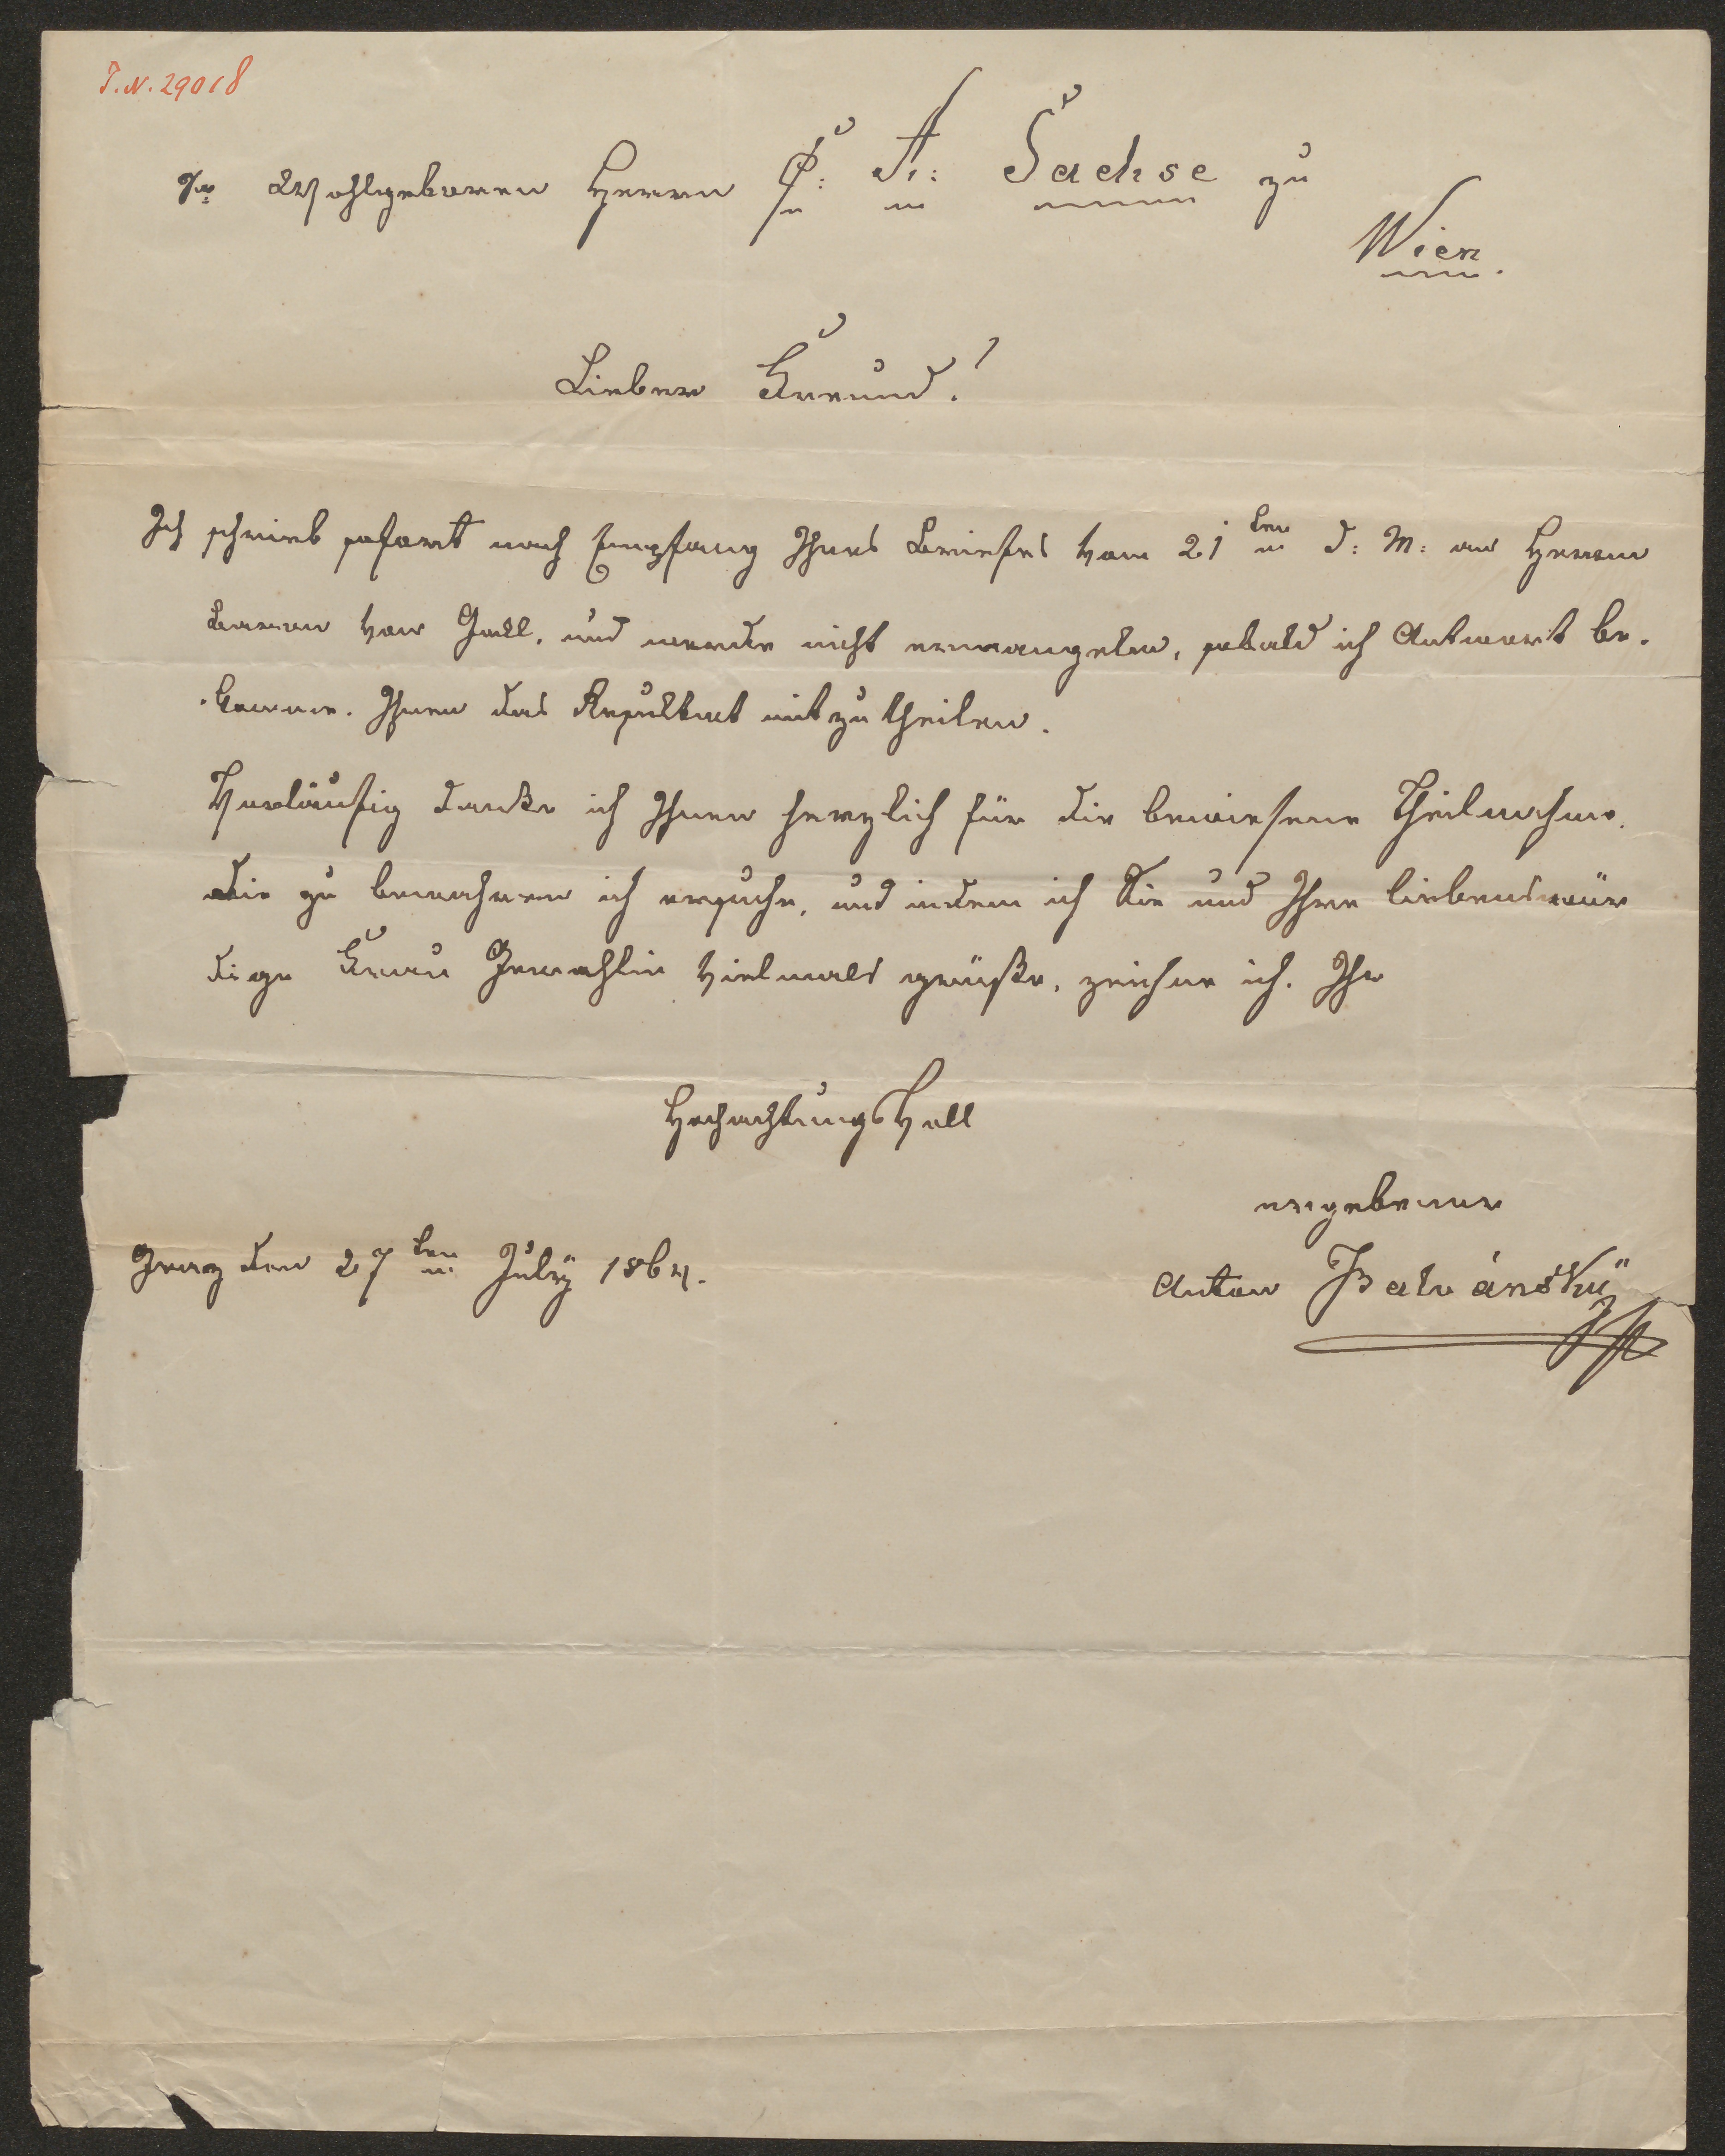 I.N. 29018
Sr Wohlgeboren Herrn C: A: Sachse zu
Wien.
Lieber Freund!
Ich schrieb sofort nach Empfang Ihres Briefes vom 21ten d: M: an Herrn
Baron von Gall, und werde nicht ermangeln, sobald ich Antwort be-
-komme. Ihnen das Resultat mitzutheilen.
Vorläufig danke ich Ihnen herzlich für die bewiesene Theilnahme.
die zu bewahren ich ersuche, und indem ich Sie und Ihre liebenswür
dige Frau Gemahlin vielmals grüße, zeichne ich. Ihr
HochachtungsVoll
ergebener
Graz den 27ten July 1864.
Anton Balvánský